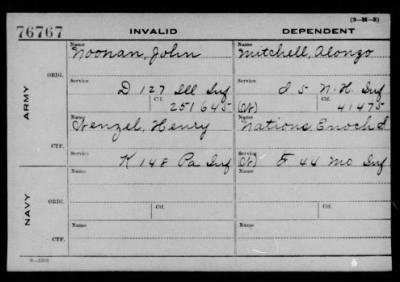 (3-M-3)
76767 INVALID DEPENDENT
ARMY
ORIG.
Name Name
Noonan, John Mitchell, Alonzo
Service Service
D 127 Ill Inf I 5 N.H. Inf
Ctf. Ctf.
251645 (W) 41475
CTF.
Name Name
Wenzel, Henry Nations, Enoch S
Service Service
K 148 Pa Inf (W) F 44 Mo Inf
NAVY
ORIG.
Name Name
Ctf. Ctf.
CTF.
Name Name